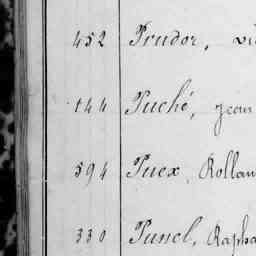 452 Prudor, vi
144 Puché, Jean
594 Puex, Rollan
330 Punel, Rapha